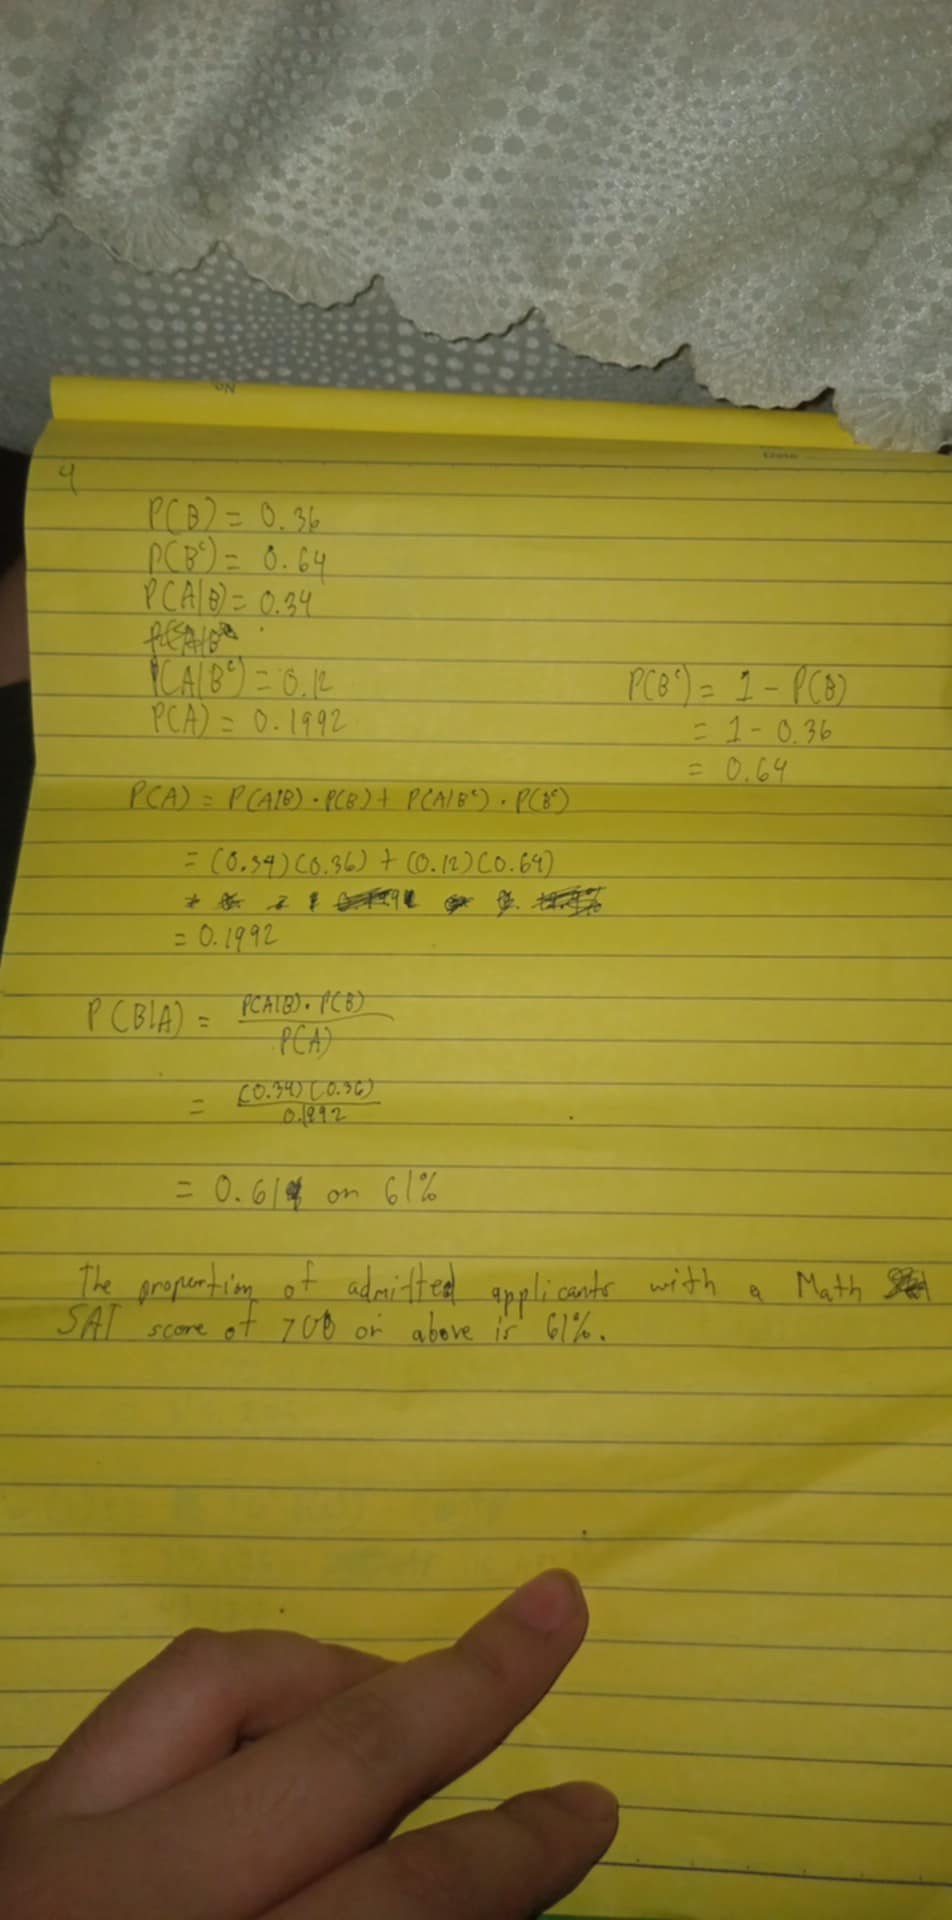 No
4
P(B) = 0.36
P(Bᶜ) = 0.64
P(A|B) = 0.34
P(A|Bᶜ) = 0.12
P(A) = 0.1992
P(Bᶜ) = 1 - P(B)
= 1 - 0.36
= 0.64
P(A) = P(A|B) · P(B) + P(A|Bᶜ) · P(Bᶜ)
= (0.34)(0.36) + (0.12)(0.64)
= 0.1992
P(B|A) = P(A|B) · P(B)
P(A)
= (0.34)(0.36)
0.1992
= 0.61 or 61%
The proportion of admitted applicants with a Math
SAT score of 700 or above is 61%.